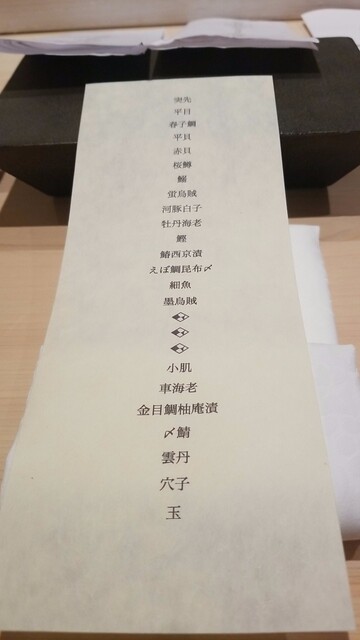 突先
平目
春子鯛
平貝
赤貝
桜鱒
鰯
蛍烏賊
河豚白子
牡丹海老
鰹
鰆西京漬
えぼ鯛昆布〆
細魚
墨烏賊
小肌
車海老
金目鯛柚庵漬
〆鯖
雲丹
穴子
玉